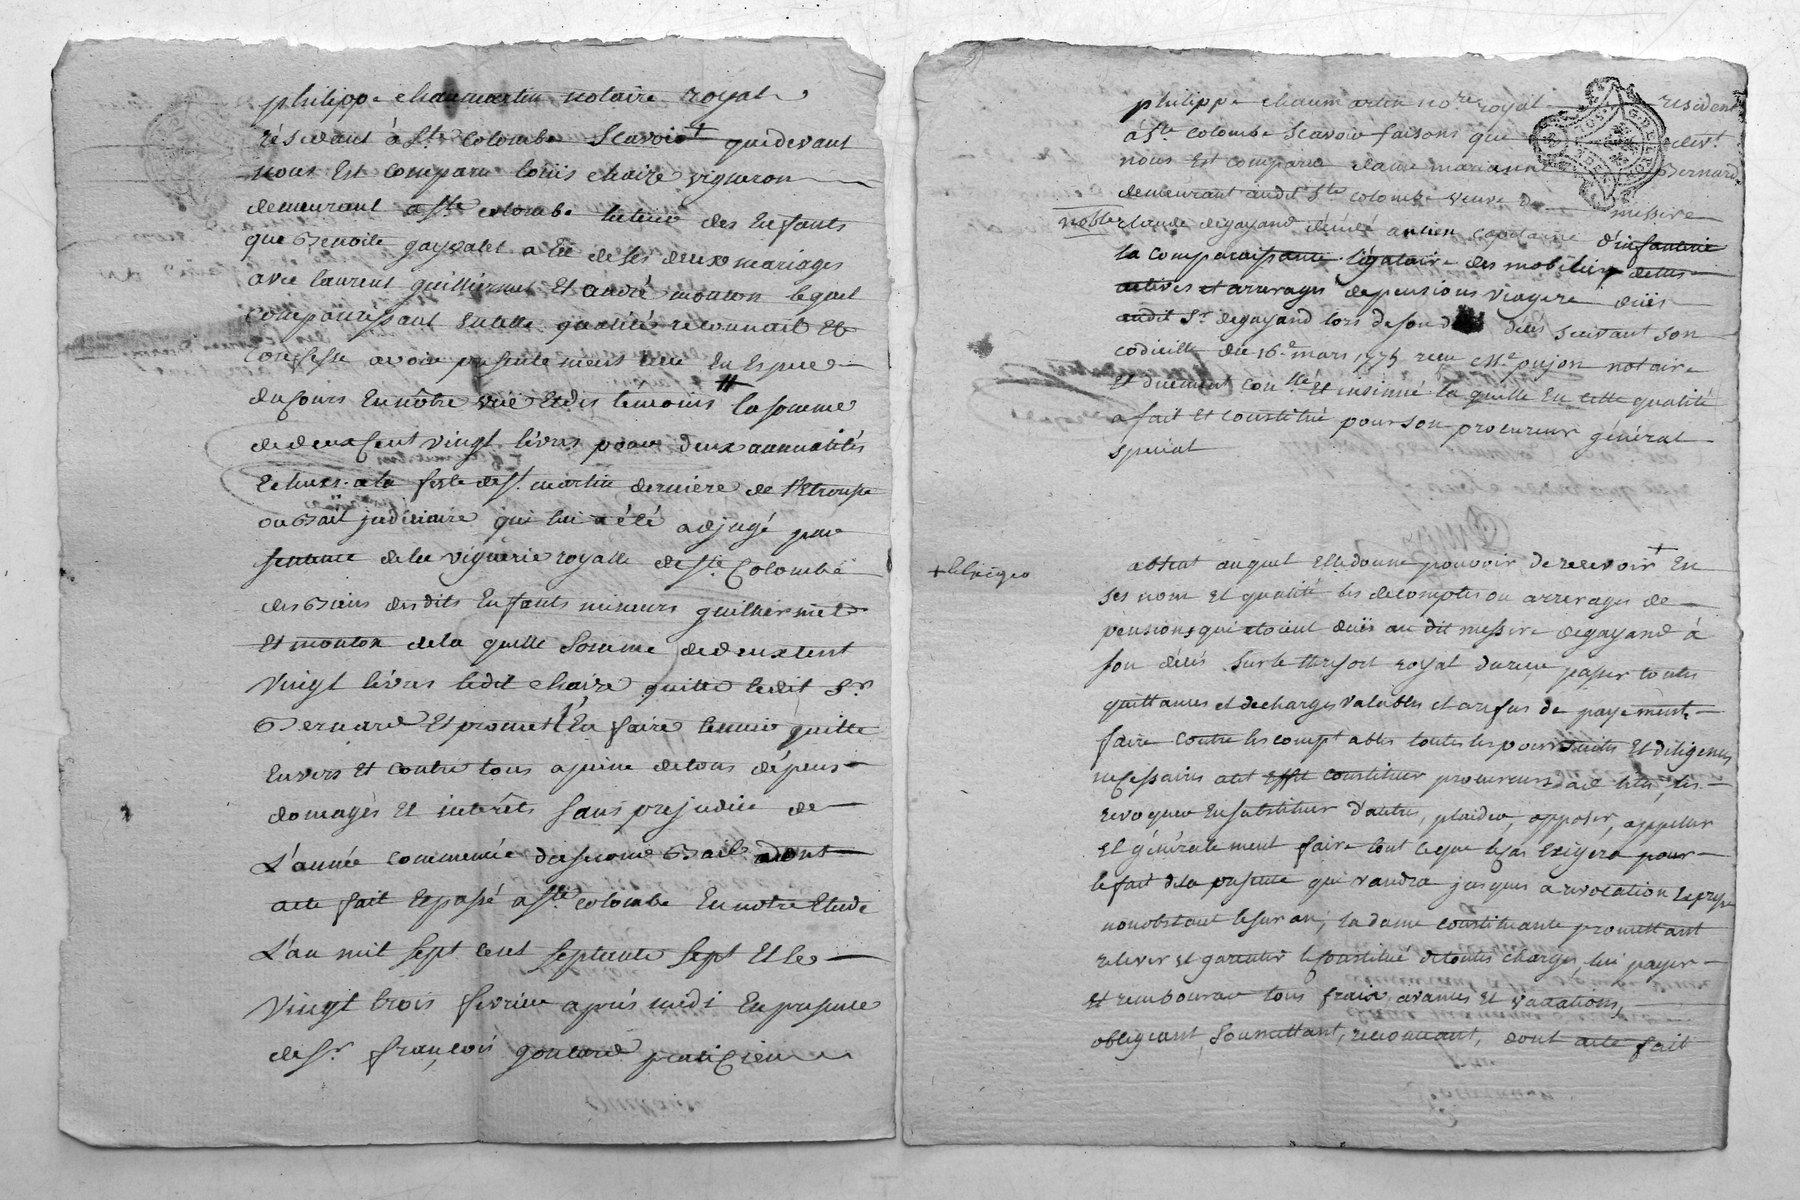 philippe chaumartin notaire royal
résidant à Ste Colombe scavoir que devant
nous est comparu loüis chaize vigneron
demeurant a Ste colombe tuteur des enfants
que Benoite gayvalet a eu de ses deux mariages
avec laurent guilhermet et andré mouton lequel
comparaissant en telle qualité reconnait et
confesse avoir presentement reçu en especes
du cours en nôtre vüe et des temoins la somme
de deux cent vingt livres pour deux annualités
echues a la feste de St martin derniere de
ou Bail judiciaire qui lui a été adjugé par
sentence de la viguerie royalle de Ste Colombe
des Biens des dits enfants mineurs guilhermet
et mouton de la quelle somme de deux cent
vingt livres ledit chaize quitte ledit Sr
Bernard et promet l'en faire tenir quitte
envers et contre tous a peine de tous dépens
domages et interêts sans prejudice de
L'année commencée du second Bail dont
acte fait et passé a Ste colombe en notre etude
L'an mil sept cent septante sept et le
vingt trois fevrier après midi en presence
de Sr françois goutard praticien
philippe chaumartin nore royal resident
à Ste colombe scavoir faisons que devt
nous est comparue dame marianne Bernard
demeurant audit Ste colombe veuve de messire
noble claude degayand décédé ancien capitaine d'infanterie
la comparaissante légataire des mobiliers dettes
actives et arrerages de pensions viagere düs
audit Sr degayand lors de son décès suivant son
codicille du 16e mars 1775 reçu Me pujon notaire
et duement conllé et insinué la quelle en cette qualité
a fait et constitué pour son procureur général
spécial
absent auquel elle donne pouvoir de recevoir + en
+ et exiger
ses nom et qualité les decomptes ou arrerages de
pensions qui etoient düs au dit messire degayand à
son décès sur le thresort royal du reçu passer toutes
quittances et decharges valables et au refus de payement
faire contre les comptables toutes les poursuites et diligences
necessaires a cet effet constituer procureurs ad lites, les
revoquer en substituer d'autres, plaider, opposer, appeller
et généralement faire tout ce que le cas exigera pour
le fait de la presente qui vaudra jusques a revocation expresse
nonobstant le sur an, la dame constituante promettant
relever et garantir le constitué de toutes charges, lui payer
et rembourser tous frais, avances et vacations,
obligeant, soumettant, renonceant, dont acte fait